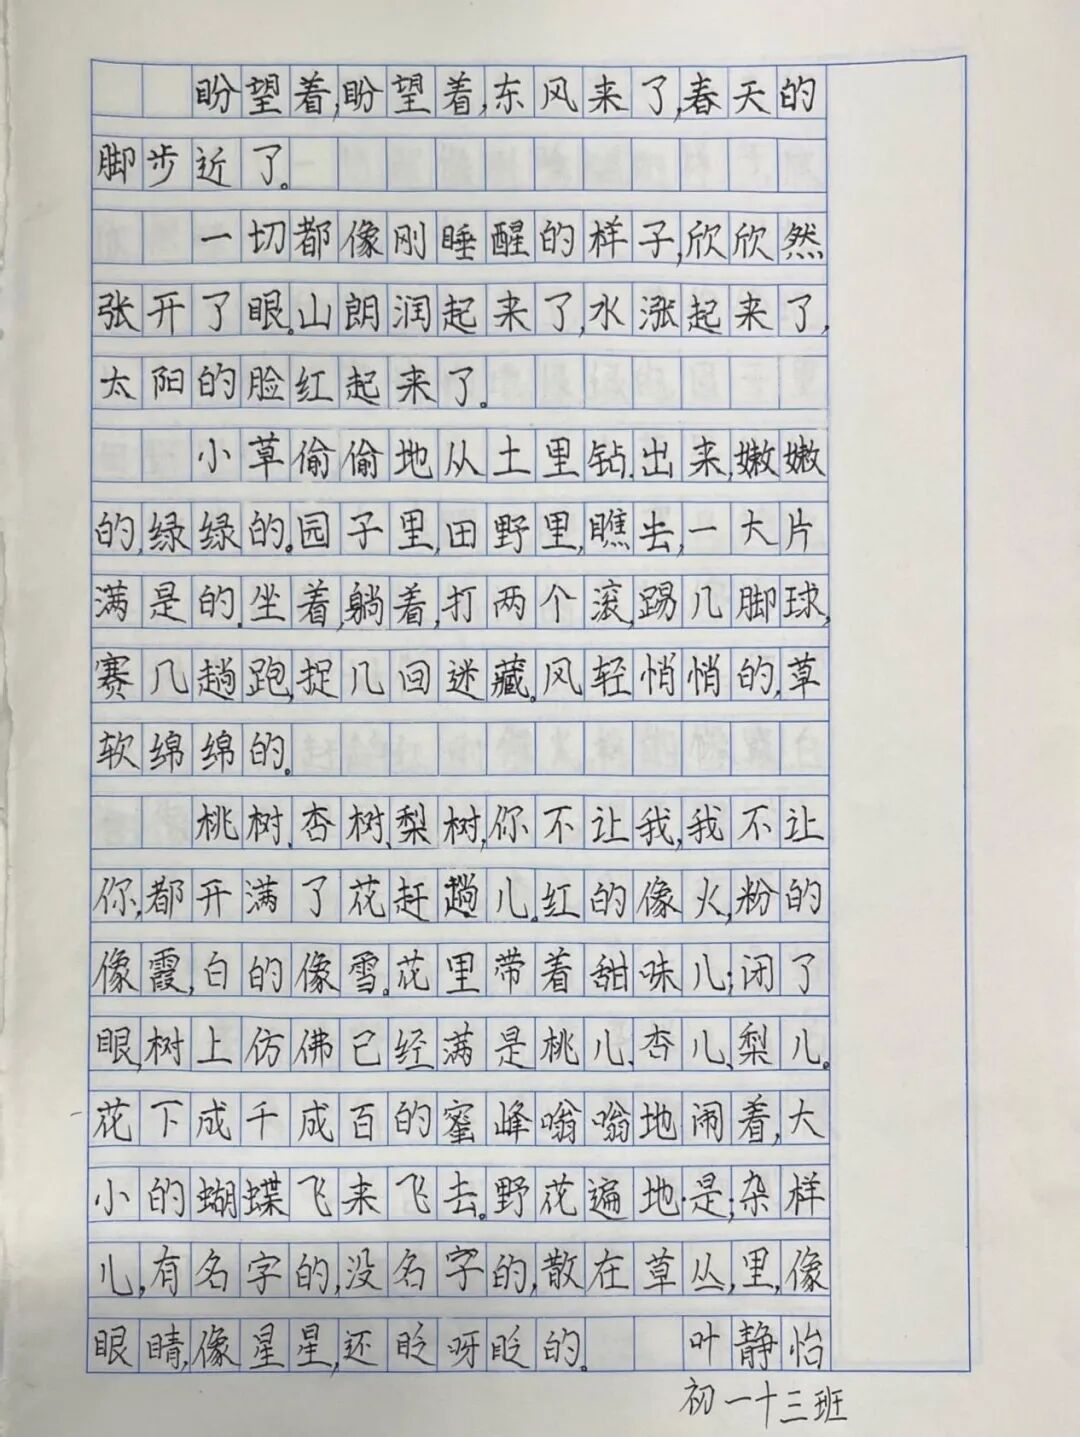 盼望着,盼望着,东风来了,春天的
脚步近了。
一切都像刚睡醒的样子,欣欣然
张开了眼。山朗润起来了,水涨起来了,
太阳的脸红起来了。
小草偷偷地从土里钻出来,嫩嫩
的,绿绿的。园子里,田野里,瞧去,一大片
满是的。坐着,躺着,打两个滚,踢几脚球,
赛几趟跑,捉几回迷藏。风轻悄悄的,草
软绵绵的。
桃树、杏树、梨树,你不让我,我不让
你,都开满了花赶趟儿。红的像火,粉的
像霞,白的像雪。花里带着甜味儿;闭了
眼,树上仿佛已经满是桃儿、杏儿、梨儿。
花下成千成百的蜜峰嗡嗡地闹着,大
小的蝴蝶飞来飞去。野花遍地是;杂样
儿,有名字的,没名字的,散在草丛,里,像
眼睛,像星星,还眨呀眨的。 叶静怡
初一十三班